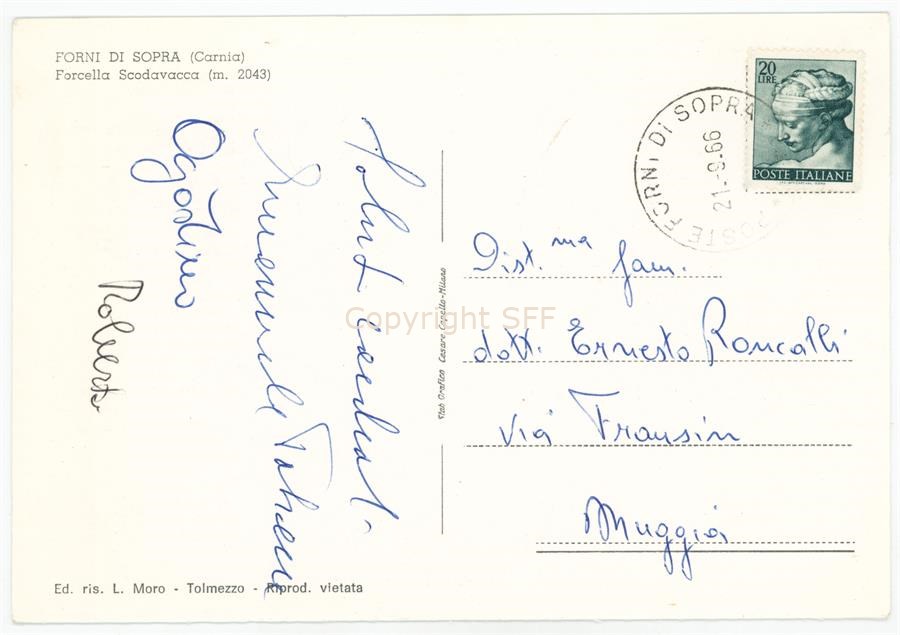 FORNI DI SOPRA (Carnia)
Forcella Scodavacca (m. 2043)
Saluti cordiali
Agostino
Roberto
20
LIRE
POSTE ITALIANE
POSTE FORNI DI SOPRA
21.-9.66
Dist.ma fam.
dott. Ernesto Roncalli
via Frausin
Muggia
Stab Grafico Cesare Cappello-Milano
Copyright SFF
Ed. ris. L. Moro - Tolmezzo - Riprod. vietata